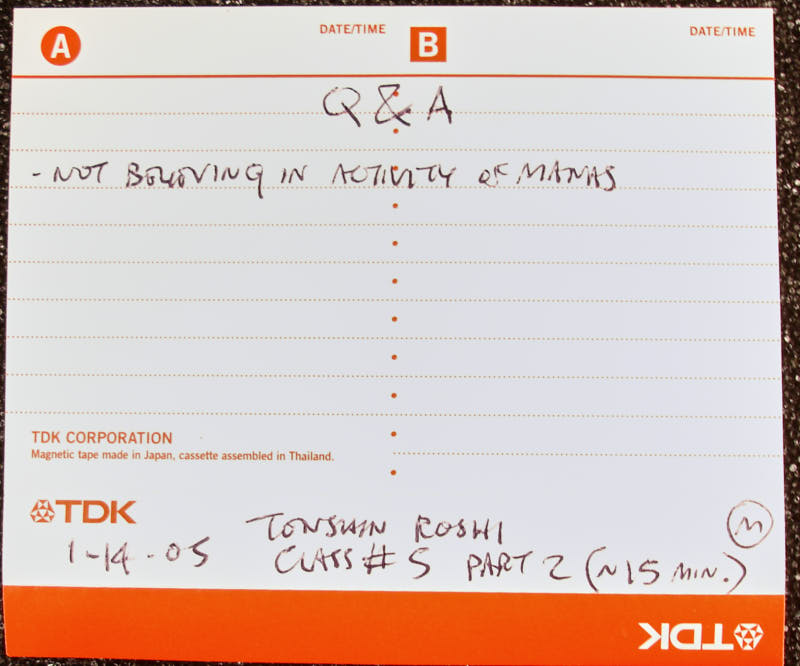 A DATE/TIME B DATE/TIME
Q & A
- NOT BELIEVING IN ACTIVITY OF MANAS
TDK CORPORATION
Magnetic tape made in Japan, cassette assembled in Thailand.
TDK
TONSHIN ROSHI M
1-14-05 CLASS # 5 PART 2 (~15 MIN.)
TDK